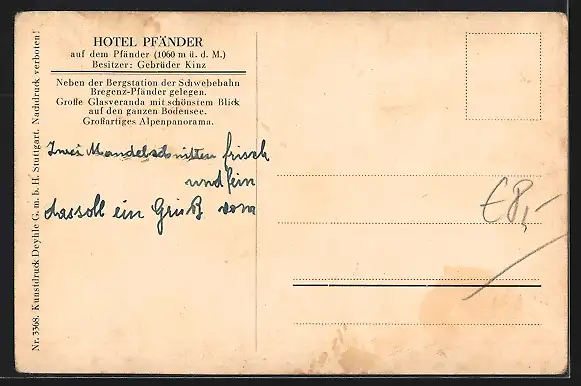 HOTEL PFÄNDER
auf dem Pfänder (1060 m ü. d. M.)
Besitzer: Gebrüder Kinz
Neben der Bergstation der Schwebebahn
Bregenz-Pfänder gelegen.
Große Glasveranda mit schönstem Blick
auf den ganzen Bodensee.
Großartiges Alpenpanorama.
Zwei Mandelschnitten frisch
und fein
das soll ein Gruß vom
€8,-
Nr. 3368. Kunstdruck Deyhle G. m. b. H. Stuttgart. Nachdruck verboten!